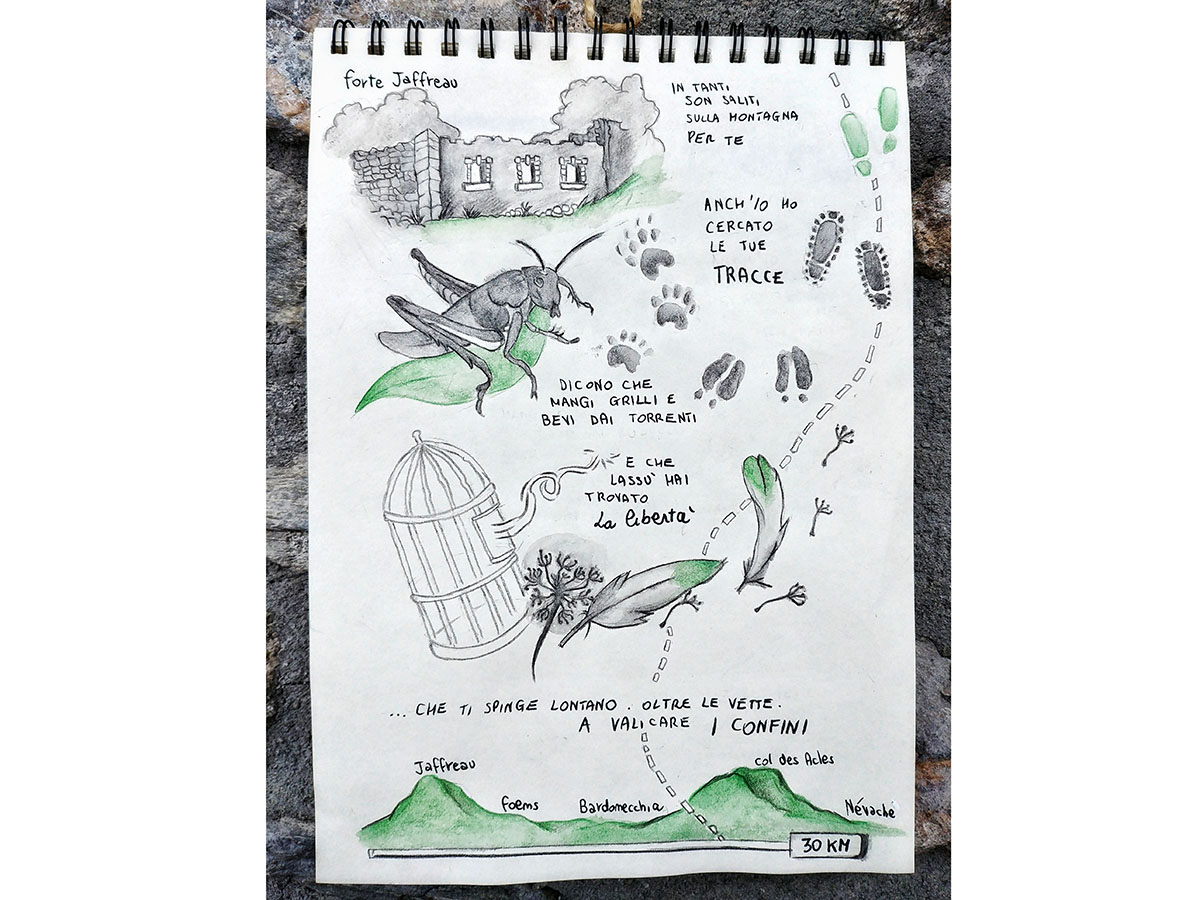 forte Jaffreau
IN TANTI
SON SALITI
SULLA MONTAGNA
PER TE
ANCH'IO HO
CERCATO
LE TUE
TRACCE
DICONO CHE
MANGI GRILLI E
BEVI DAI TORRENTI
E CHE
LASSU' HAI
TROVATO
La libertà
... CHE TI SPINGE LONTANO. OLTRE LE VETTE.
A VALICARE I CONFINI
Jaffreau
foems
Bardonecchia
col des Acles
Névache
30 KM